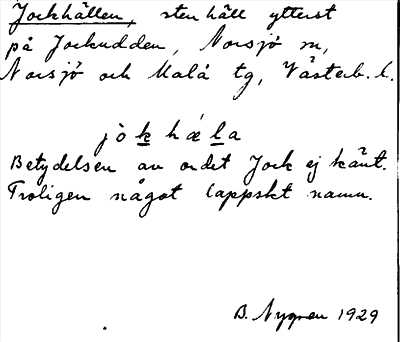 Jockhällen, stenhäll ytterst
på Jockudden, Norsjö sn,
Norsjö och Malå tg, Västerb. l.
jò k h ǽ l a
Betydelsen av ordet Jock ej känt.
Troligen något lappskt namn.
B. Nygren 1929